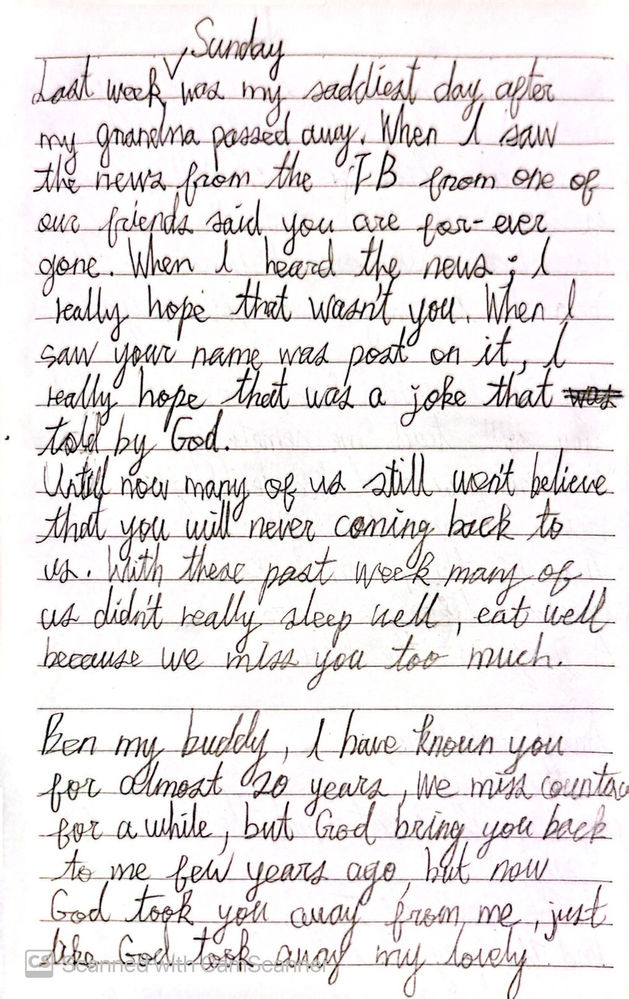 Sunday
Last week was my saddiest day after
my grandma passed away. When I saw
the news from the FB from one of
our friends said you are for-ever
gone. When I heard the news; I
really hope that wasn't you. When I
saw your name was post on it, I
really hope that was a joke that was
told by God.
Untill now many of us still won't believe
that you will never coming back to
us. With these past week many of
us didn't really sleep well, eat well
because we miss you too much.
Ben my buddy, I have known you
for almost 20 years, We miss
for a while, but God bring you back
to me few years ago, but now
God took you away from me, just
like God took away my lovely
CS Scanned with CamScanner